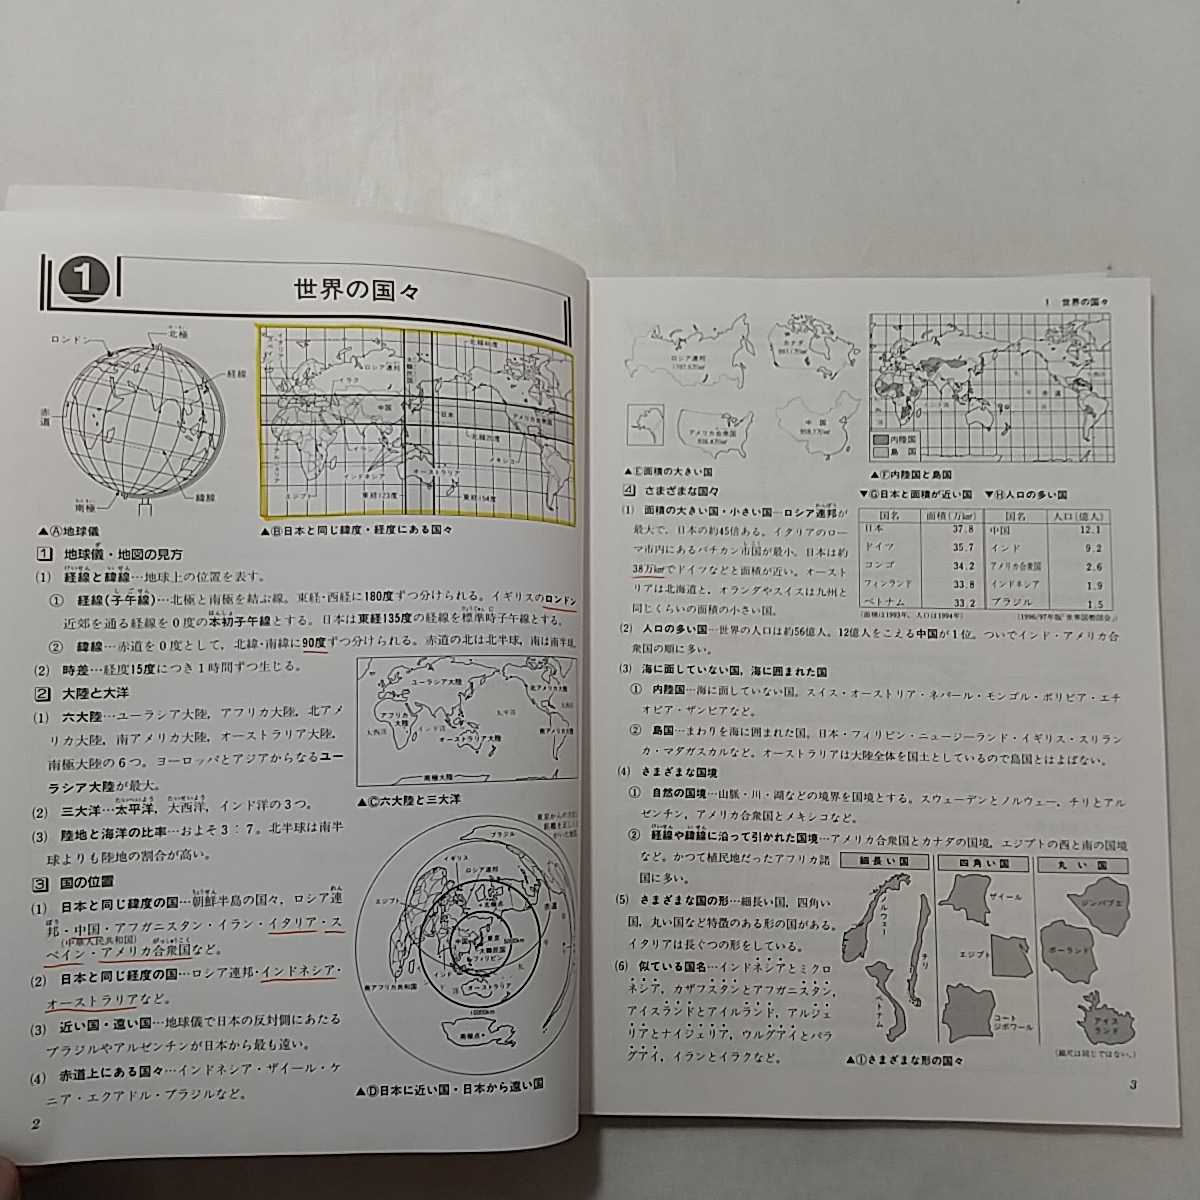 1
世界の国々
ロンドン
北極
経線
赤道
緯線
南極
▲Ⓐ地球儀
北緯46度
ロシア連邦
イラク
中国
日本
アメリカ合衆国
北緯20度
イラン
インドネシア
オーストラリア
メキシコ
エジプト
東経123度
東経154度
▲Ⓑ日本と同じ緯度・経度にある国々
1 地球儀・地図の見方
(1) 経線と緯線…地球上の位置を表す。
① 経線(子午線)…北極と南極を結ぶ線。東経・西経に180度ずつ分けられる。イギリスのロンドン
近郊を通る経線を0度の本初子午線とする。日本は東経135度の経線を標準時子午線とする。
② 緯線…赤道を0度として，北緯・南緯に90度ずつ分けられる。赤道の北は北半球，南は南半球。
(2) 時差…経度15度につき1時間ずつ生じる。
2 大陸と大洋
(1) 六大陸…ユーラシア大陸，アフリカ大陸，北アメ
リカ大陸，南アメリカ大陸，オーストラリア大陸，
南極大陸の6つ。ヨーロッパとアジアからなるユー
ラシア大陸が最大。
(2) 三大洋…太平洋，大西洋，インド洋の3つ。
(3) 陸地と海洋の比率…およそ3：7。北半球は南半
球よりも陸地の割合が高い。
ユーラシア大陸
北アメリカ大陸
アフリカ大陸
太平洋
大西洋
インド洋
オーストラリア大陸
南アメリカ大陸
南極大陸
▲Ⓒ六大陸と三大洋
3 国の位置
(1) 日本と同じ緯度の国…朝鮮半島の国々，ロシア連
邦・中国・アフガニスタン・イラン・イタリア・ス
(中華人民共和国)
ペイン・アメリカ合衆国など。
(2) 日本と同じ経度の国…ロシア連邦・インドネシア・
オーストラリアなど。
(3) 近い国・遠い国…地球儀で日本の反対側にあたる
ブラジルやアルゼンチンが日本から最も遠い。
(4) 赤道上にある国々…インドネシア・ザイール・ケ
ニア・エクアドル・ブラジルなど。
ブラジル
イギリス
ロシア連邦
エジプト
北極点
赤道
中国
東京
大韓民国
フィリピン
5000km
インド
南アフリカ共和国
オーストラリア
10000km
南極点
▲Ⓓ日本に近い国・日本から遠い国
2
1 世界の国々
ロシア連邦
カナダ
アメリカ合衆国
中国
▲Ⓔ面積の大きい国
内陸国
島国
▲Ⓕ内陸国と島国
4 さまざまな国々
(1) 面積の大きい国・小さい国…ロシア連邦が
最大で，日本の約45倍ある。イタリアのロー
マ市内にあるバチカン市国が最小。日本は約
38万km²でドイツなどと面積が近い。オースト
リアは北海道と，オランダやスイスは九州と
同じくらいの面積の小さい国。
▼Ⓖ日本と面積が近い国 ▼Ⓗ人口の多い国
国名 面積(万km²) 国名 人口(億人)
日本 37.8 中国 12.1
ドイツ 35.7 インド 9.2
コンゴ 34.2 アメリカ合衆国 2.6
フィンランド 33.8 インドネシア 1.9
ベトナム 33.2 ブラジル 1.5
(面積は1993年，人口は1994年) (1996/97年版「世界国勢図会」)
(2) 人口の多い国…世界の人口は約56億人。12億人をこえる中国が1位。ついでインド・アメリカ合
衆国の順に多い。
(3) 海に面していない国，海に囲まれた国
① 内陸国…海に面していない国。スイス・オーストリア・ネパール・モンゴル・ボリビア・エチ
オピア・ザンビアなど。
② 島国…まわりを海に囲まれた国。日本・フィリピン・ニュージーランド・イギリス・スリラン
カ・マダガスカルなど。オーストラリアは大陸全体を国土としているので島国とはよばない。
(4) さまざまな国境
① 自然の国境…山脈・川・湖などの境界を国境とする。スウェーデンとノルウェー，チリとアル
ゼンチン，アメリカ合衆国とメキシコなど。
② 経線や緯線に沿って引かれた国境…アメリカ合衆国とカナダの国境，エジプトの西と南の国境
など。かつて植民地だったアフリカ諸
国に多い。
(5) さまざまな国の形…細長い国，四角い
国，丸い国など特徴のある形の国がある。
イタリアは長ぐつの形をしている。
(6) 似ている国名…インドネシアとミクロ
ネシア，カザフスタンとアフガニスタン，
アイスランドとアイルランド，アルジェ
リアとナイジェリア，ウルグアイとパラ
グアイ，イランとイラクなど。
細長い国
四角い国
丸い国
ノルウェー
チリ
ベトナム
ザイール
エジプト
コートジボワール
ジンバブエ
ポーランド
アイスランド
(縮尺は同じではない。)
▲Ⓘさまざまな形の国々
3